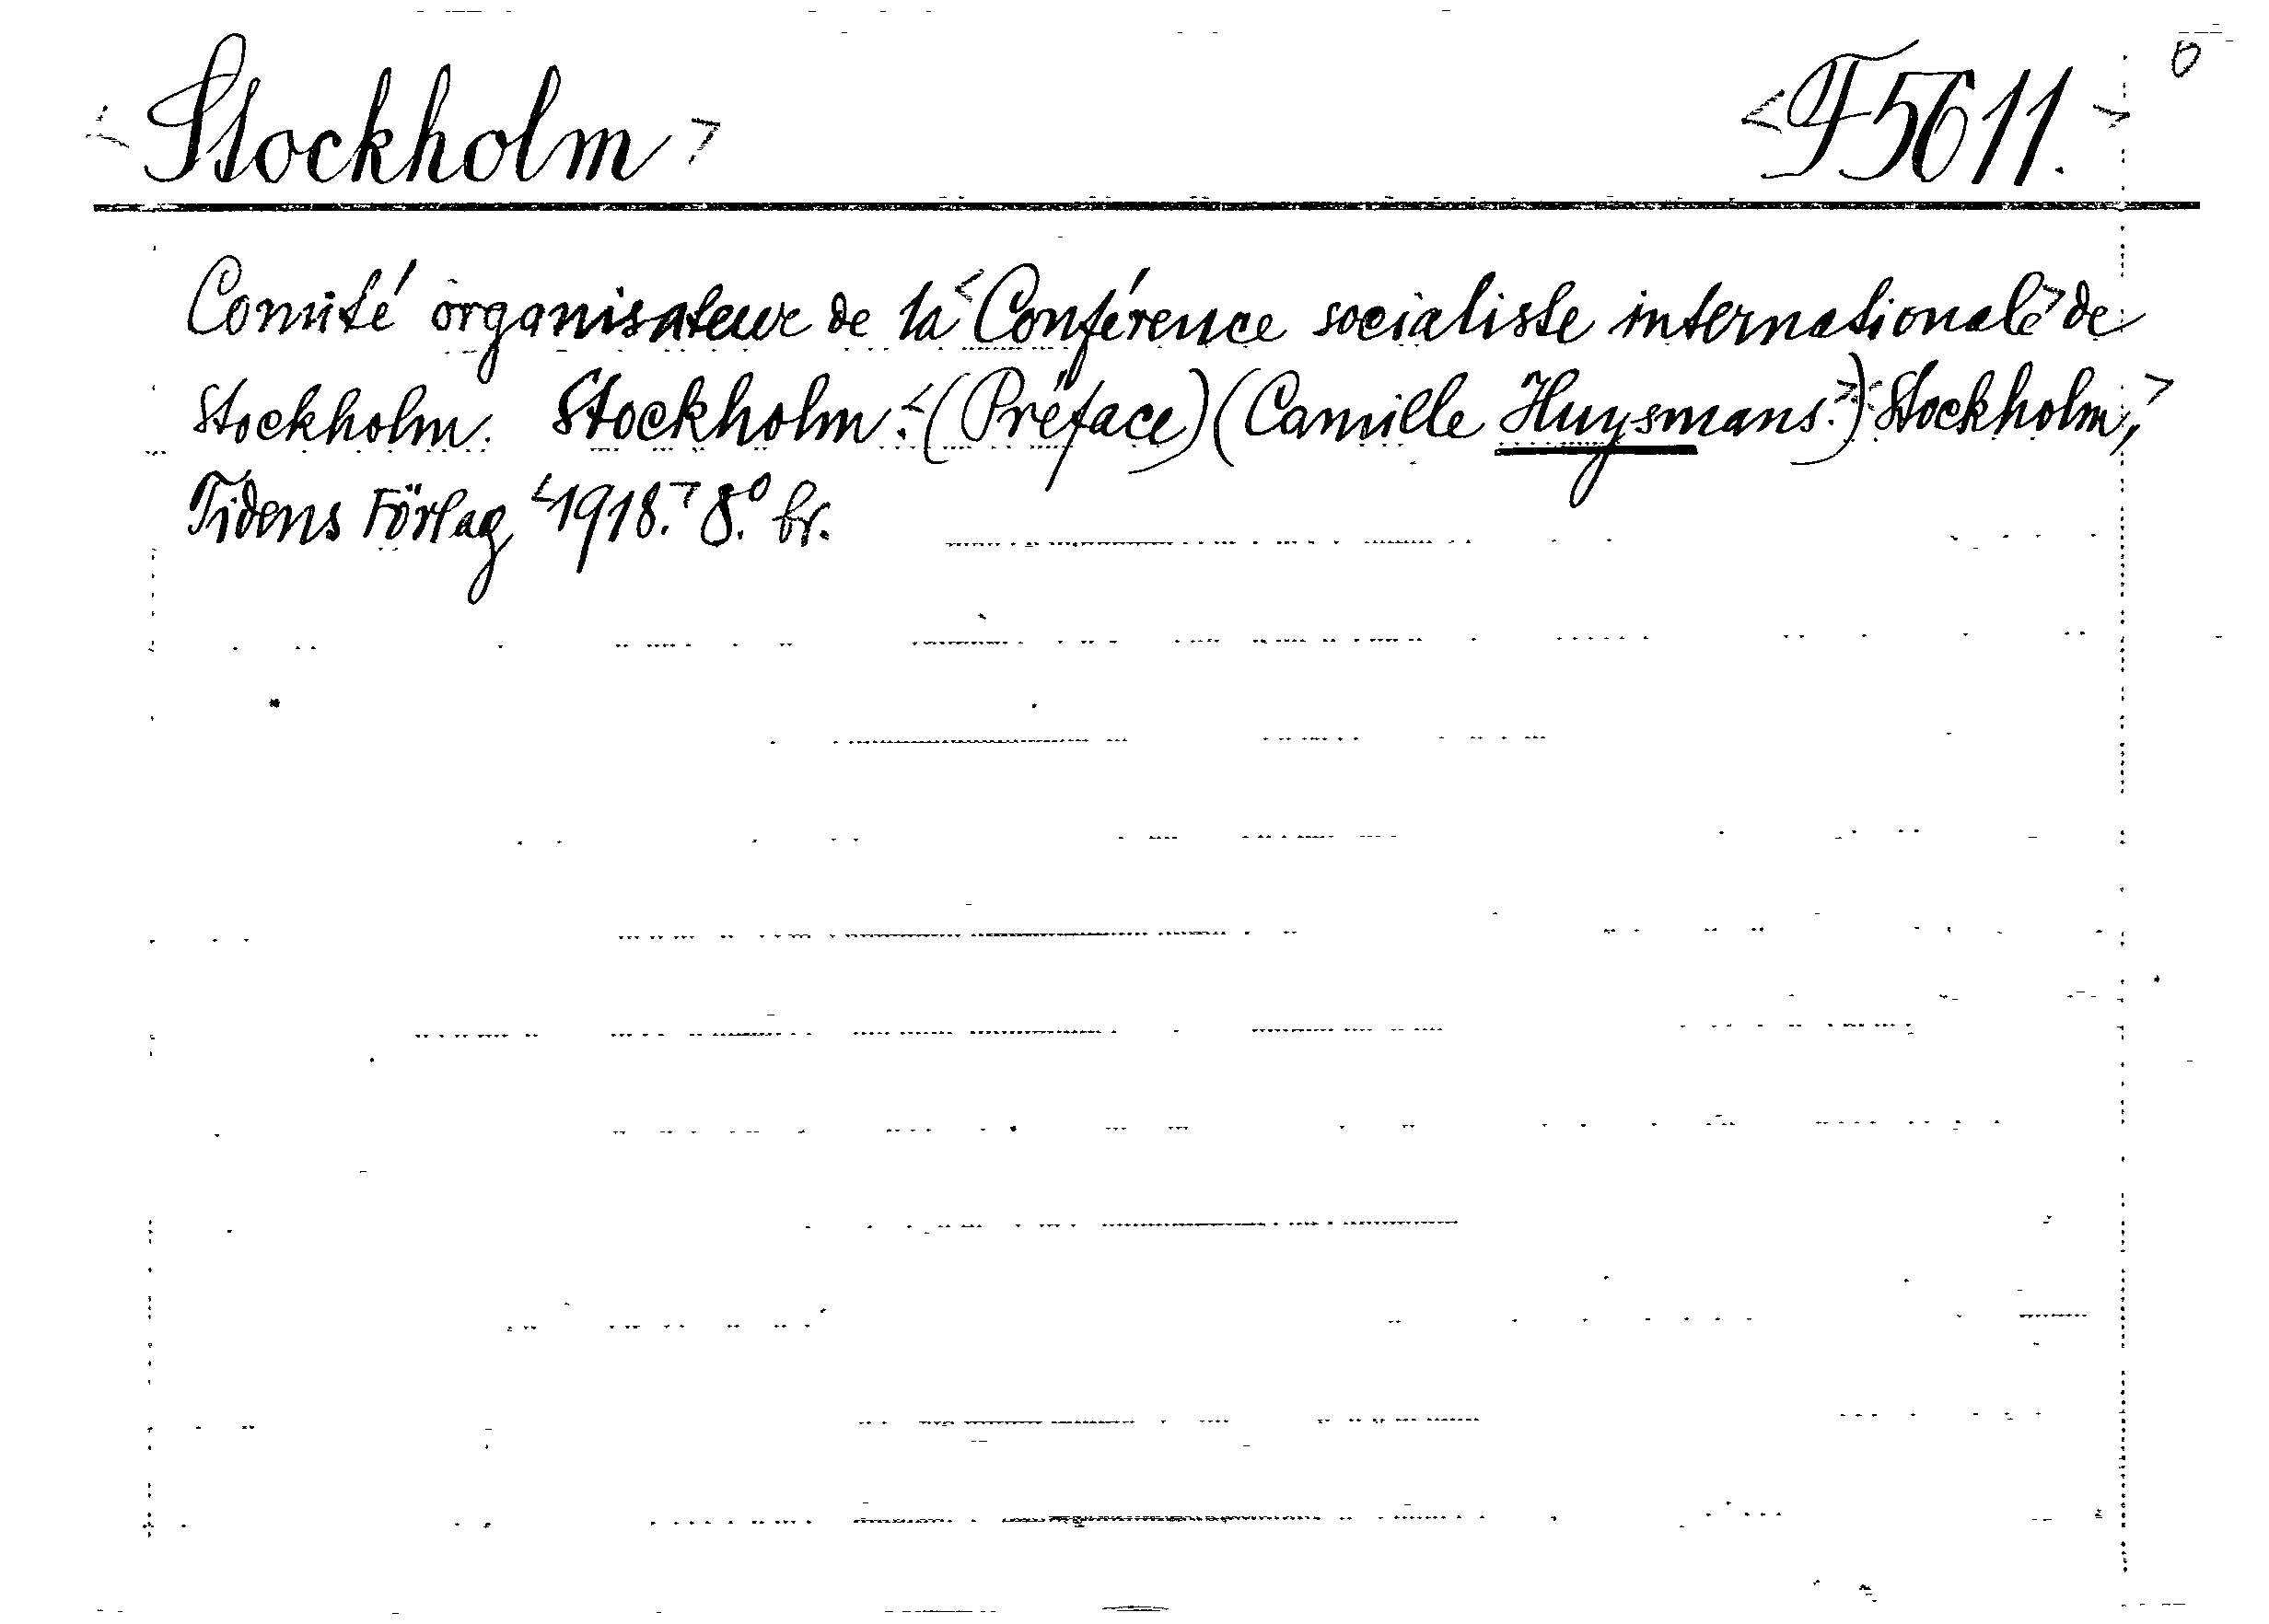 <Stockholm> <F5611.> 0
Comité organisateur de la <Conférence socialiste internationale> de
Stockholm. Stockholm. <(Préface) (Camille Huysmans.>) <Stockholm,>
Tidens Förlag, <1918.> 8.° br.